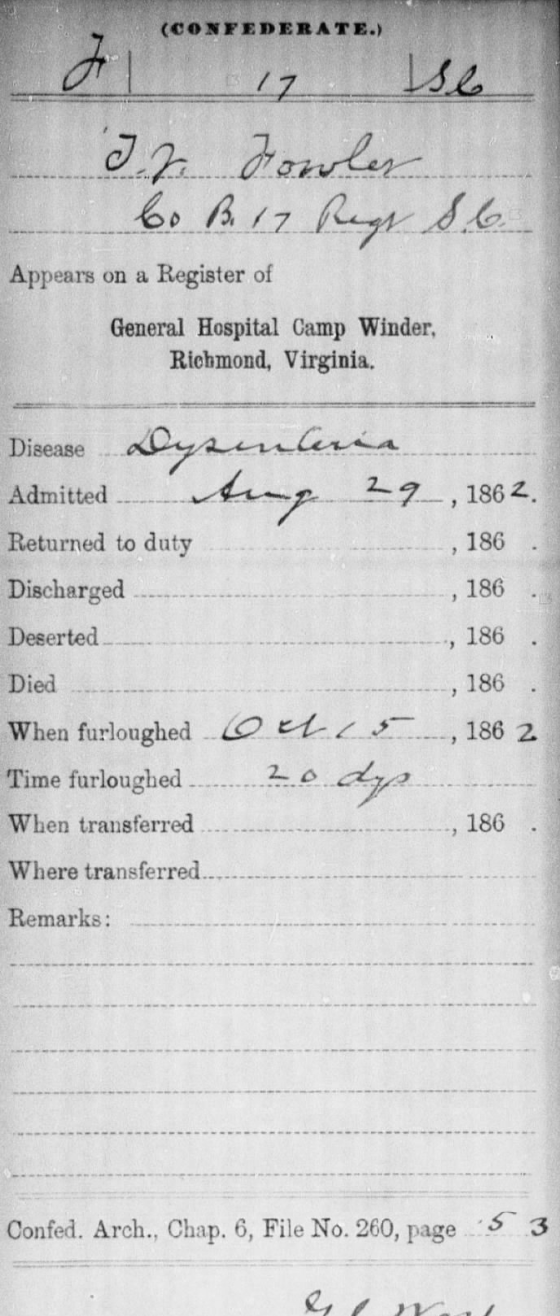 (CONFEDERATE.)
F 17 S C
Fowler
Co B. 17 Regt S.C.
Appears on a Register of
General Hospital Camp Winder,
Richmond, Virginia.
Disease Dysenteria
Admitted Aug 29, 1862.
Returned to duty , 186 .
Discharged , 186 .
Deserted , 186 .
Died , 186 .
When furloughed Oct 15, 1862
Time furloughed 20 dys
When transferred , 186 .
Where transferred
Remarks:
Confed. Arch., Chap. 6, File No. 260, page 53